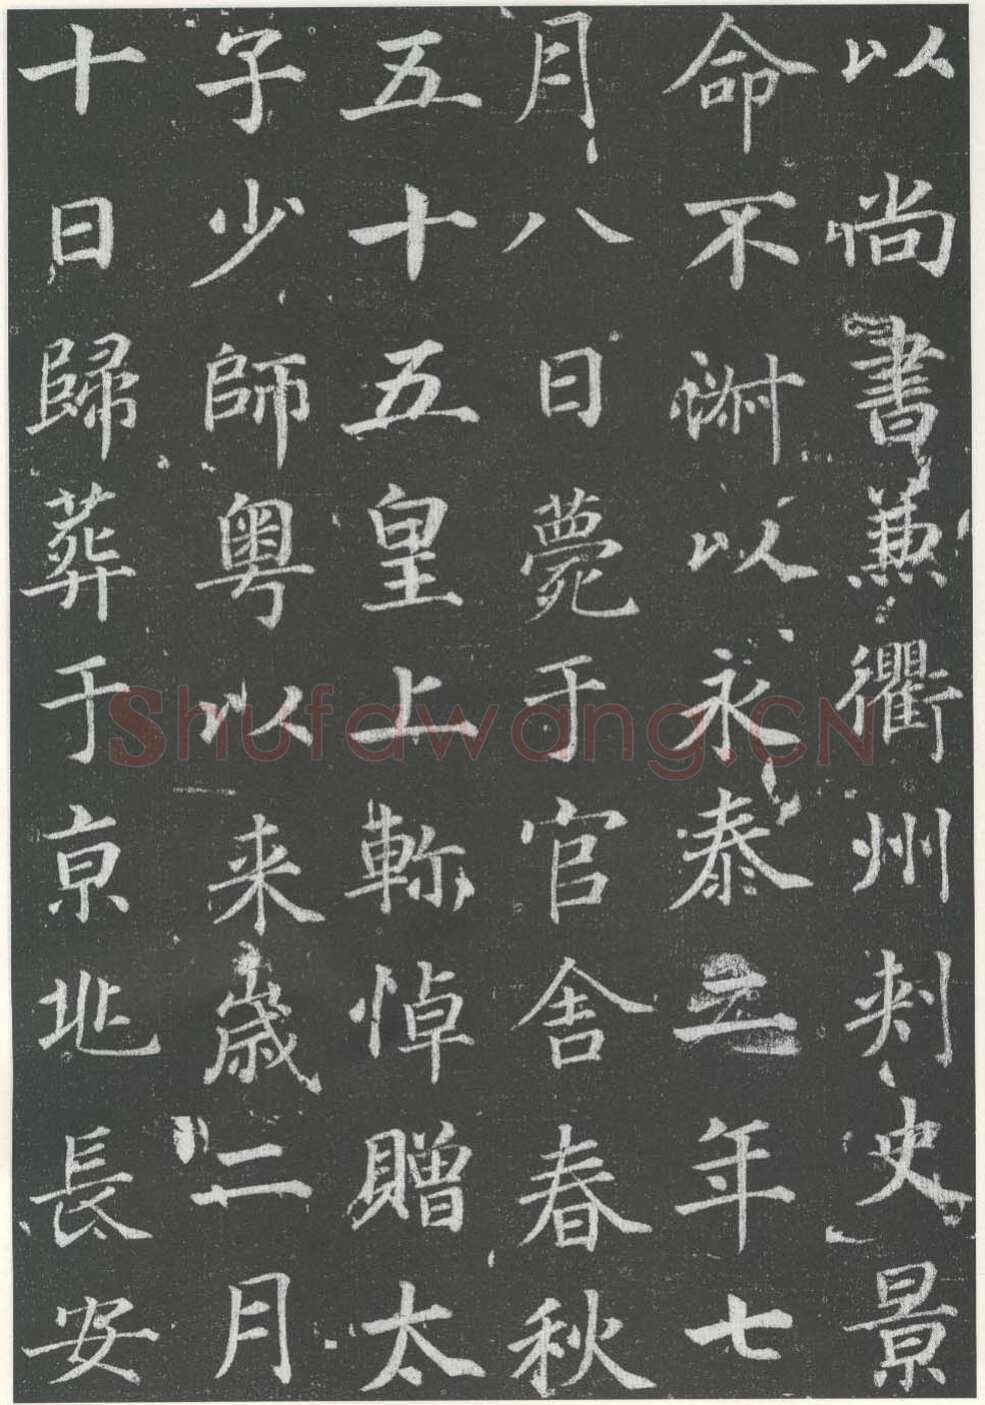 以尚書兼衢州刺史景
命不以永泰二年七
月八日薨于官舍春秋
五十五皇上軫悼贈太
子少師粵以来歲二月
十日歸葬于亰兆長安
Shufawang.CN